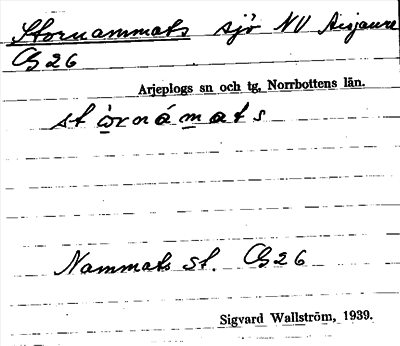 Stornammats sjö NV Aisjaure
C§ 26
Arjeplogs sn och tg, Norrbottens län.
stòrnámats
Nammats St. C§ 26
Sigvard Wallström, 1939.